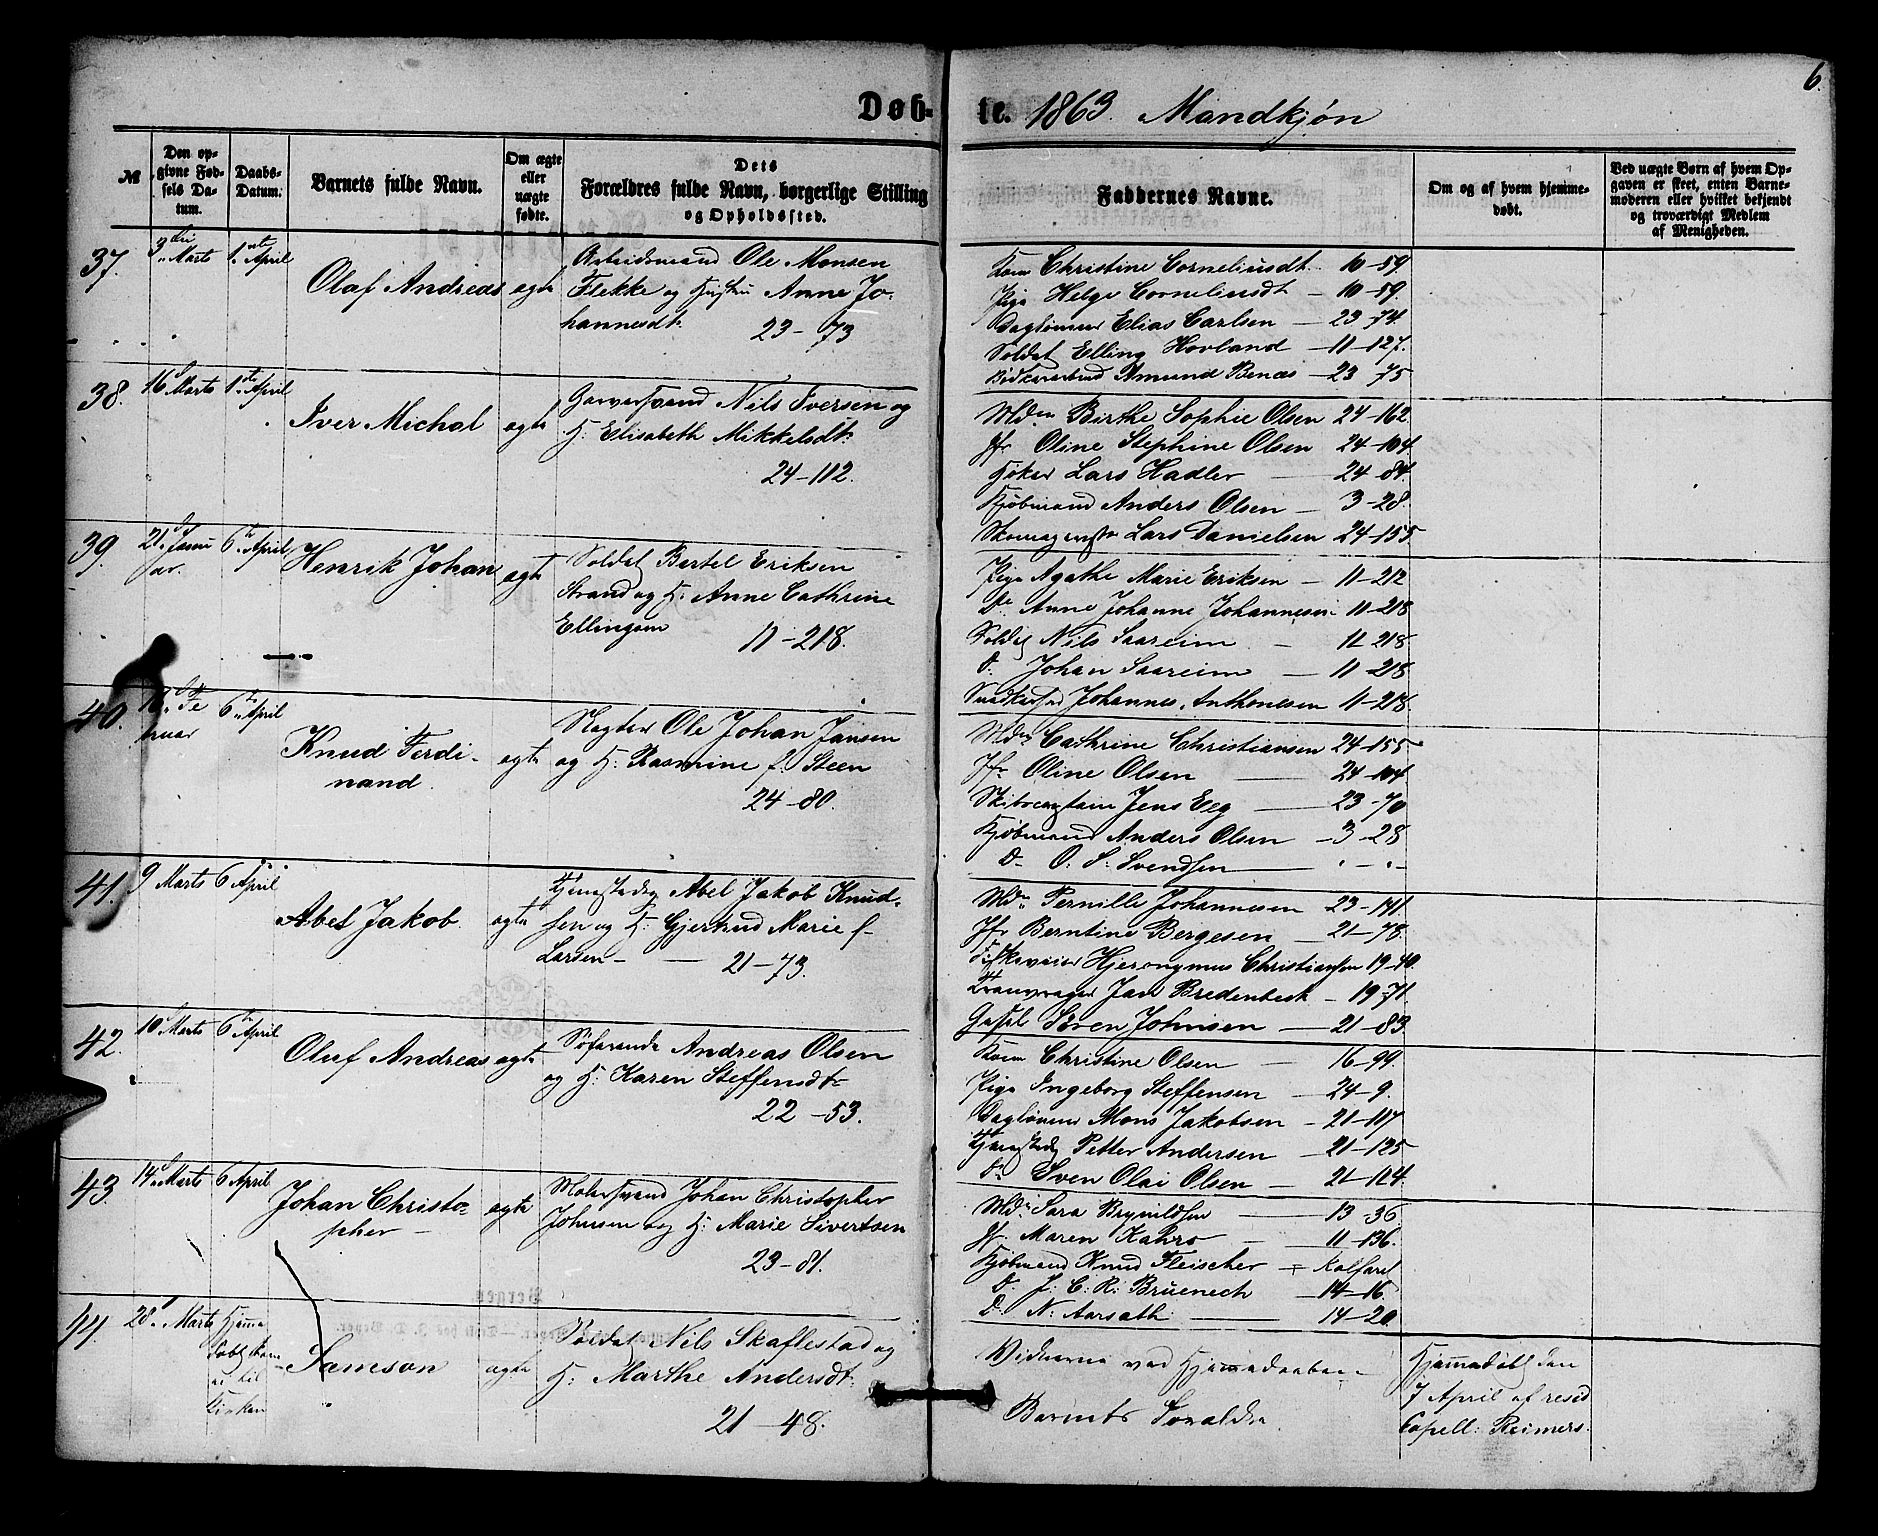 6.
Døb-te. 1863. Mandkjøn
№
Den op-
givne Fød-
sels Da-
tum.
Daabs-
Datum.
Barnets fulde Navn.
Om ægte
eller
uægte
fødte.
Dets
Forældres fulde Navn, borgerlige Stilling
og Opholdssted.
Faddernes Navne.
Om og af hvem hjemme-
døbt.
Ved uægte Børn af hvem Op-
gaven er skeet, enten Barne-
moderen eller hvilket bekjendt
og troværdigt Medlem
af Menigheden.
37. 3 Marts 1ste April
Olaf Andreas ægte
Arbeidsmand Ole Monsen
Flekke og Hustru Anne Jo-
hannesdt. 23-73
Kone Christine Corneliusdt. 10-59
Pige Helge Corneliusdt — 10-59.
Daglønner Elias Carlsen — 23-74.
Soldat Elling Hovland — 11-127.
Amund Benæs — 23-75
38. 16 Marts 1ste April
Iver Michal ægte
Garversvend Nils Iversen og
H: Elisabeth Mikkelsdt.
24-112.
Mdm Birthe Sophie Olsen 24-162
Jfr Oline Stephine Olsen 24-104.
Høker Lars Hadler — 24-84.
Kjøbmand Anders Olsen — 3-28.
Lars Danielsen 24-155
39. 21 Janu 6te April
ar.
Henrik Johan ægte
Soldat Bertel Eriksen
Strand og H: Anne Cathrine
Ellingsen 11-218.
Pige Agathe Marie Eriksen — 11-212
Do Anne Johanne Johannesen 11-218
Soldat Nils Saareim — 11-218.
D. Johan Saareim — 11-218
Johannes Anthonesen 11-218
40. 18 Fe 6te April
bruar
Knud Ferdi-
nand. ægte
Slagter Ole Johan Jansen
og H: Rasmine f. Steen
24-80.
Mdm Cathrine Christiansen 24-155
Jfr Oline Olsen — 24-104
Skibscaptain Jens Eeg — 23-70
Kjøbmand Anders Olsen — 3-28
D. O. S. Svendsen — · — · —
41. 9 Marts 6 April
Abel Jakob ægte
Abel Jakob Knud-
sen og H: Gjertrud Marie f.
Larsen — 21-73.
Mdm Pernille Johannesen 23-141.
Jfr Berntine Bergesen — 21-78.
Hjeronymus Christiansen 19-40.
Jan Bredenbeck — 19-71.
Søren Johnsen — 21-83.
42. 10 Marts 6te April
Oluf Andreas ægte
Søfarende Andreas Olsen
og H: Karen Steffensdt.
22-53.
Kone Christine Olsen — 16-99.
Pige Ingeborg Steffensen — 24-9.
Daglønner Mons Jakobsen — 21-117
Petter Andersen — 21-125
D. Sven Olai Olsen — 21-124.
43. 14 Marts 6 April
Johan Christo-
pher — ægte
Malersvend Johan Christopher
Johnsen og H: Marie Sivertsen
23-81.
Mdm Sara Brynildsen — 13-36.
Jfr. Maren Kahrs — 11-136.
Kjøbmand Knud Fleischer — Kalfaret
D. J. C. R. Bruenech — 14-16.
D. N. Aarsath. — 14-20.
44. 28 Marts Hjemme
døbt
til
Kirken
Samson ægte
Soldat Nils Skaflestad og
H: Marthe Andersdt.
21-48.
Vidnerne ved Hjemmedaaben
Barnets Forældre
Hjemmedøbt den
7 April af resid
Capell: Reimers.